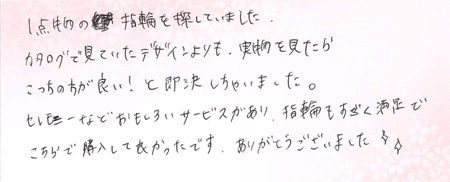 1点物の 指輪を探していました.
カタログで見ていたデザインよりも、実物を見たら
こっちの方が良い!と即決しちゃいました。
セレモニーなどおもしろいサービスがあり、指輪もすごく満足で
こちらで購入して良かったです。ありがとうございました